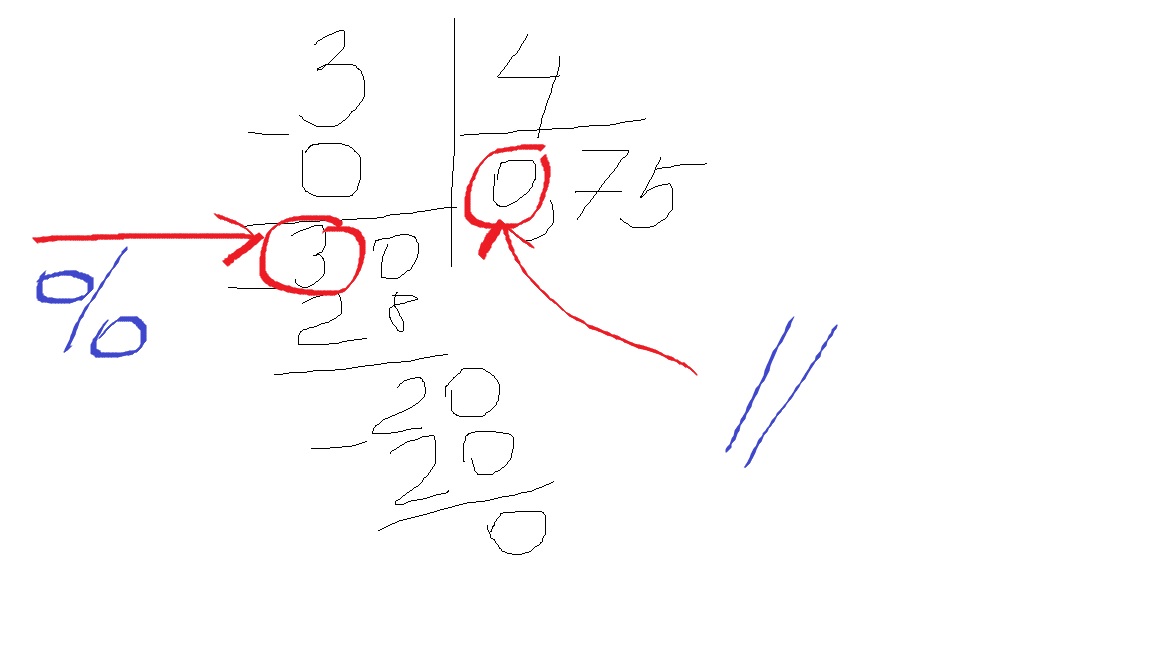 3 4
0 0,75
% 30
28 //
20
20
0